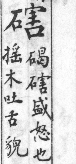 磍
碣磍盛怒也
搖木吐舌貌